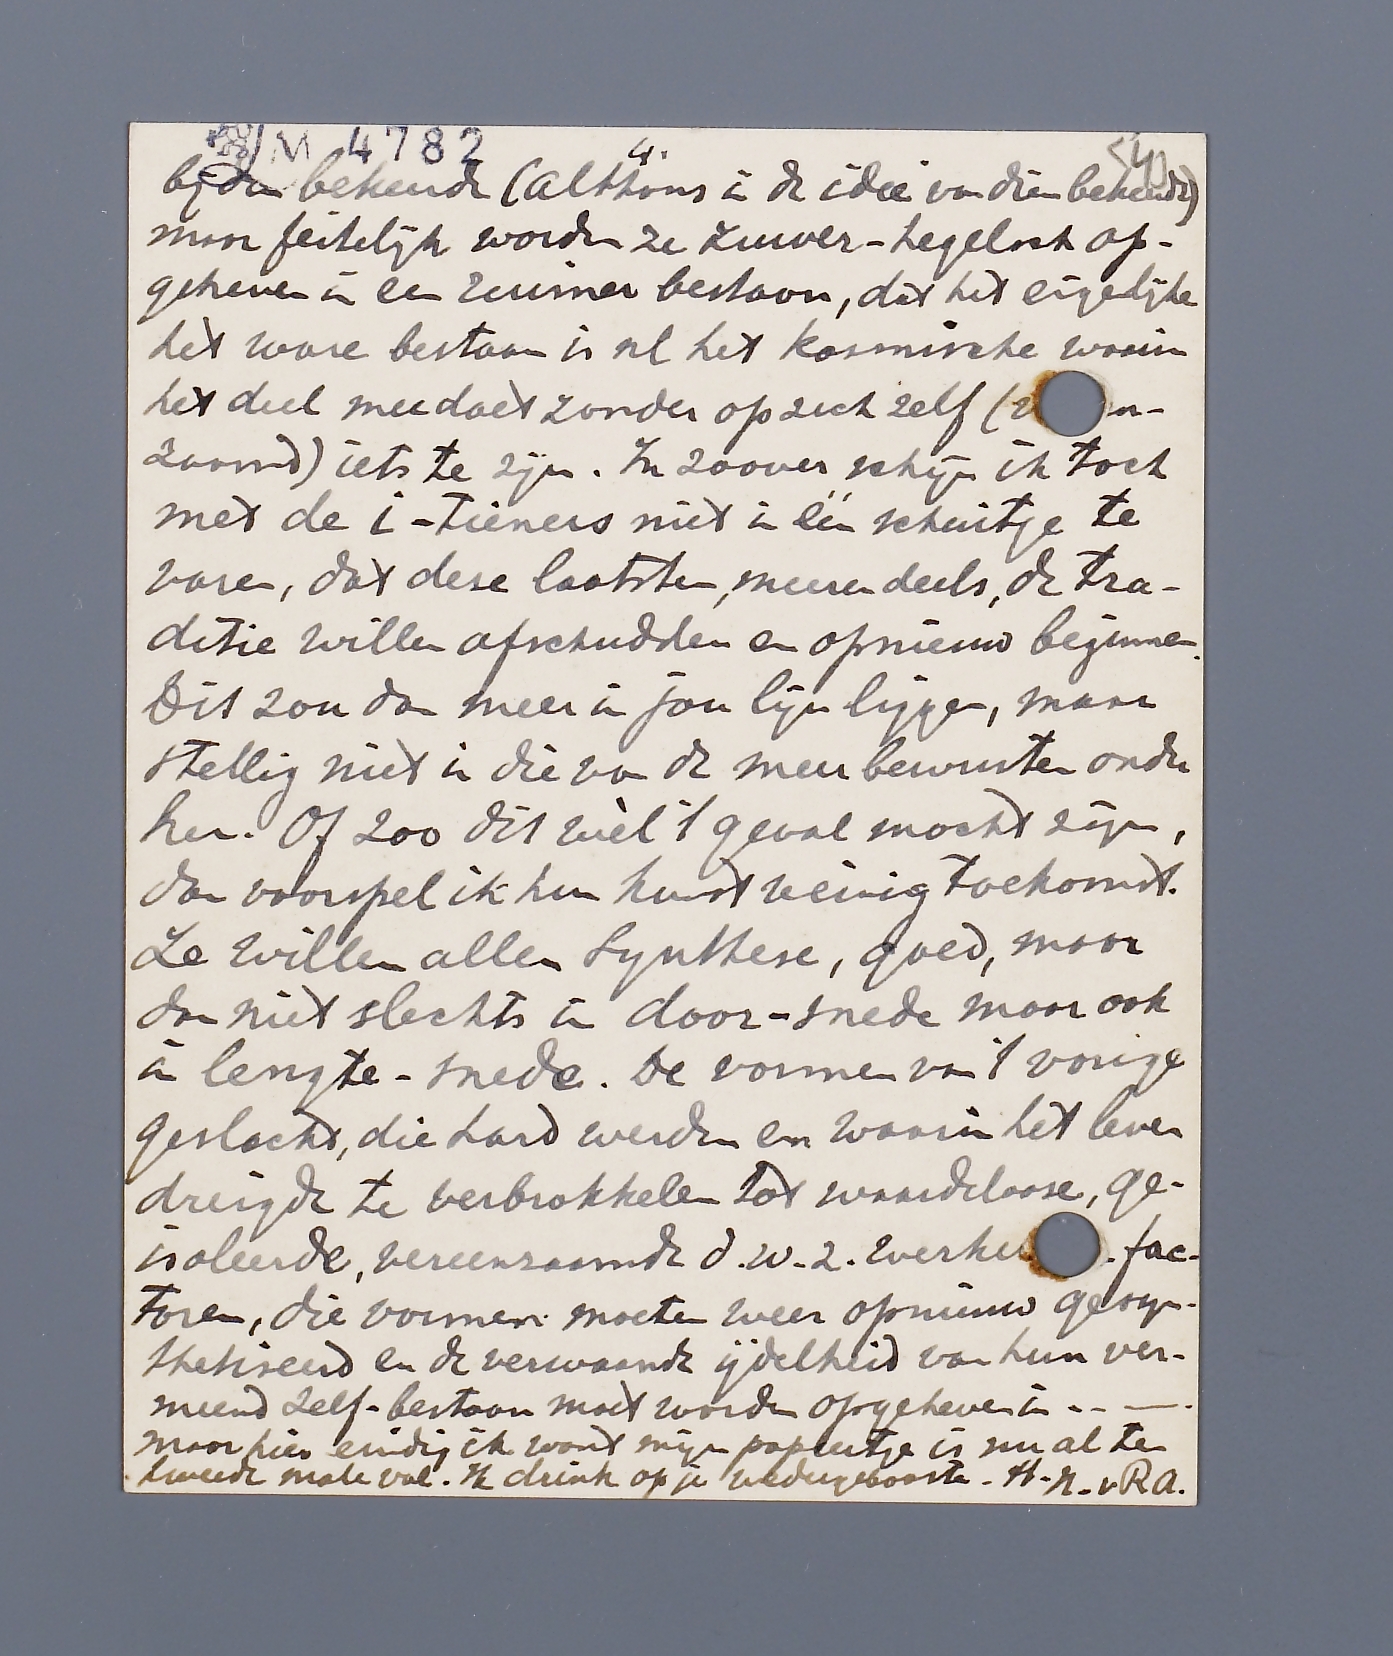 M 4782
4.
bij den bekende (althans in de idee van dien bekende)
maar feitelijk worden ze zuiver-hegelsch op-
geheven in een ruimer bestaan, dat het eigelijke
het ware bestaan is nl het kosmische waarin
het deel meedoet zonder op zich zelf (v n-
zaamd) iets te zijn. In zoover schijn ik toch
met de i-tieners niet in één schuitje te
varen, dat deze laatsten, meerendeels, de tra-
ditie willen afschudden en opnieuw beginnen.
Dit zou dan meer in jou lijn liggen, maar
stellig niet in die van de meer bewusten onder
hen. Of zoo dit wèl 't geval mocht zijn,
dan voorspel ik hun kunst weinig toekomst.
Ze willen allen Synthese, goed, maar
dan niet slechts in door-snede maar ook
in lengte-snede. De vormen van 't vorige
geslacht, die hard werden en waarin het leven
dreigde te verbrokkelen tot waardeloose, ge-
isoleerde, vereenzaamde d.w.z. fac-
toren, die vormen moeten weer opnieuw gesyn-
thetiseerd en de verwaande ijdelheid van hun ver-
meend zelf-bestaan moet worden opgeheven in -- —.
maar hier eindig ik want mijn papiertje is nu al ten
tweede male vol. Ik drink op je wedergeboorte. H.N. v R.A.